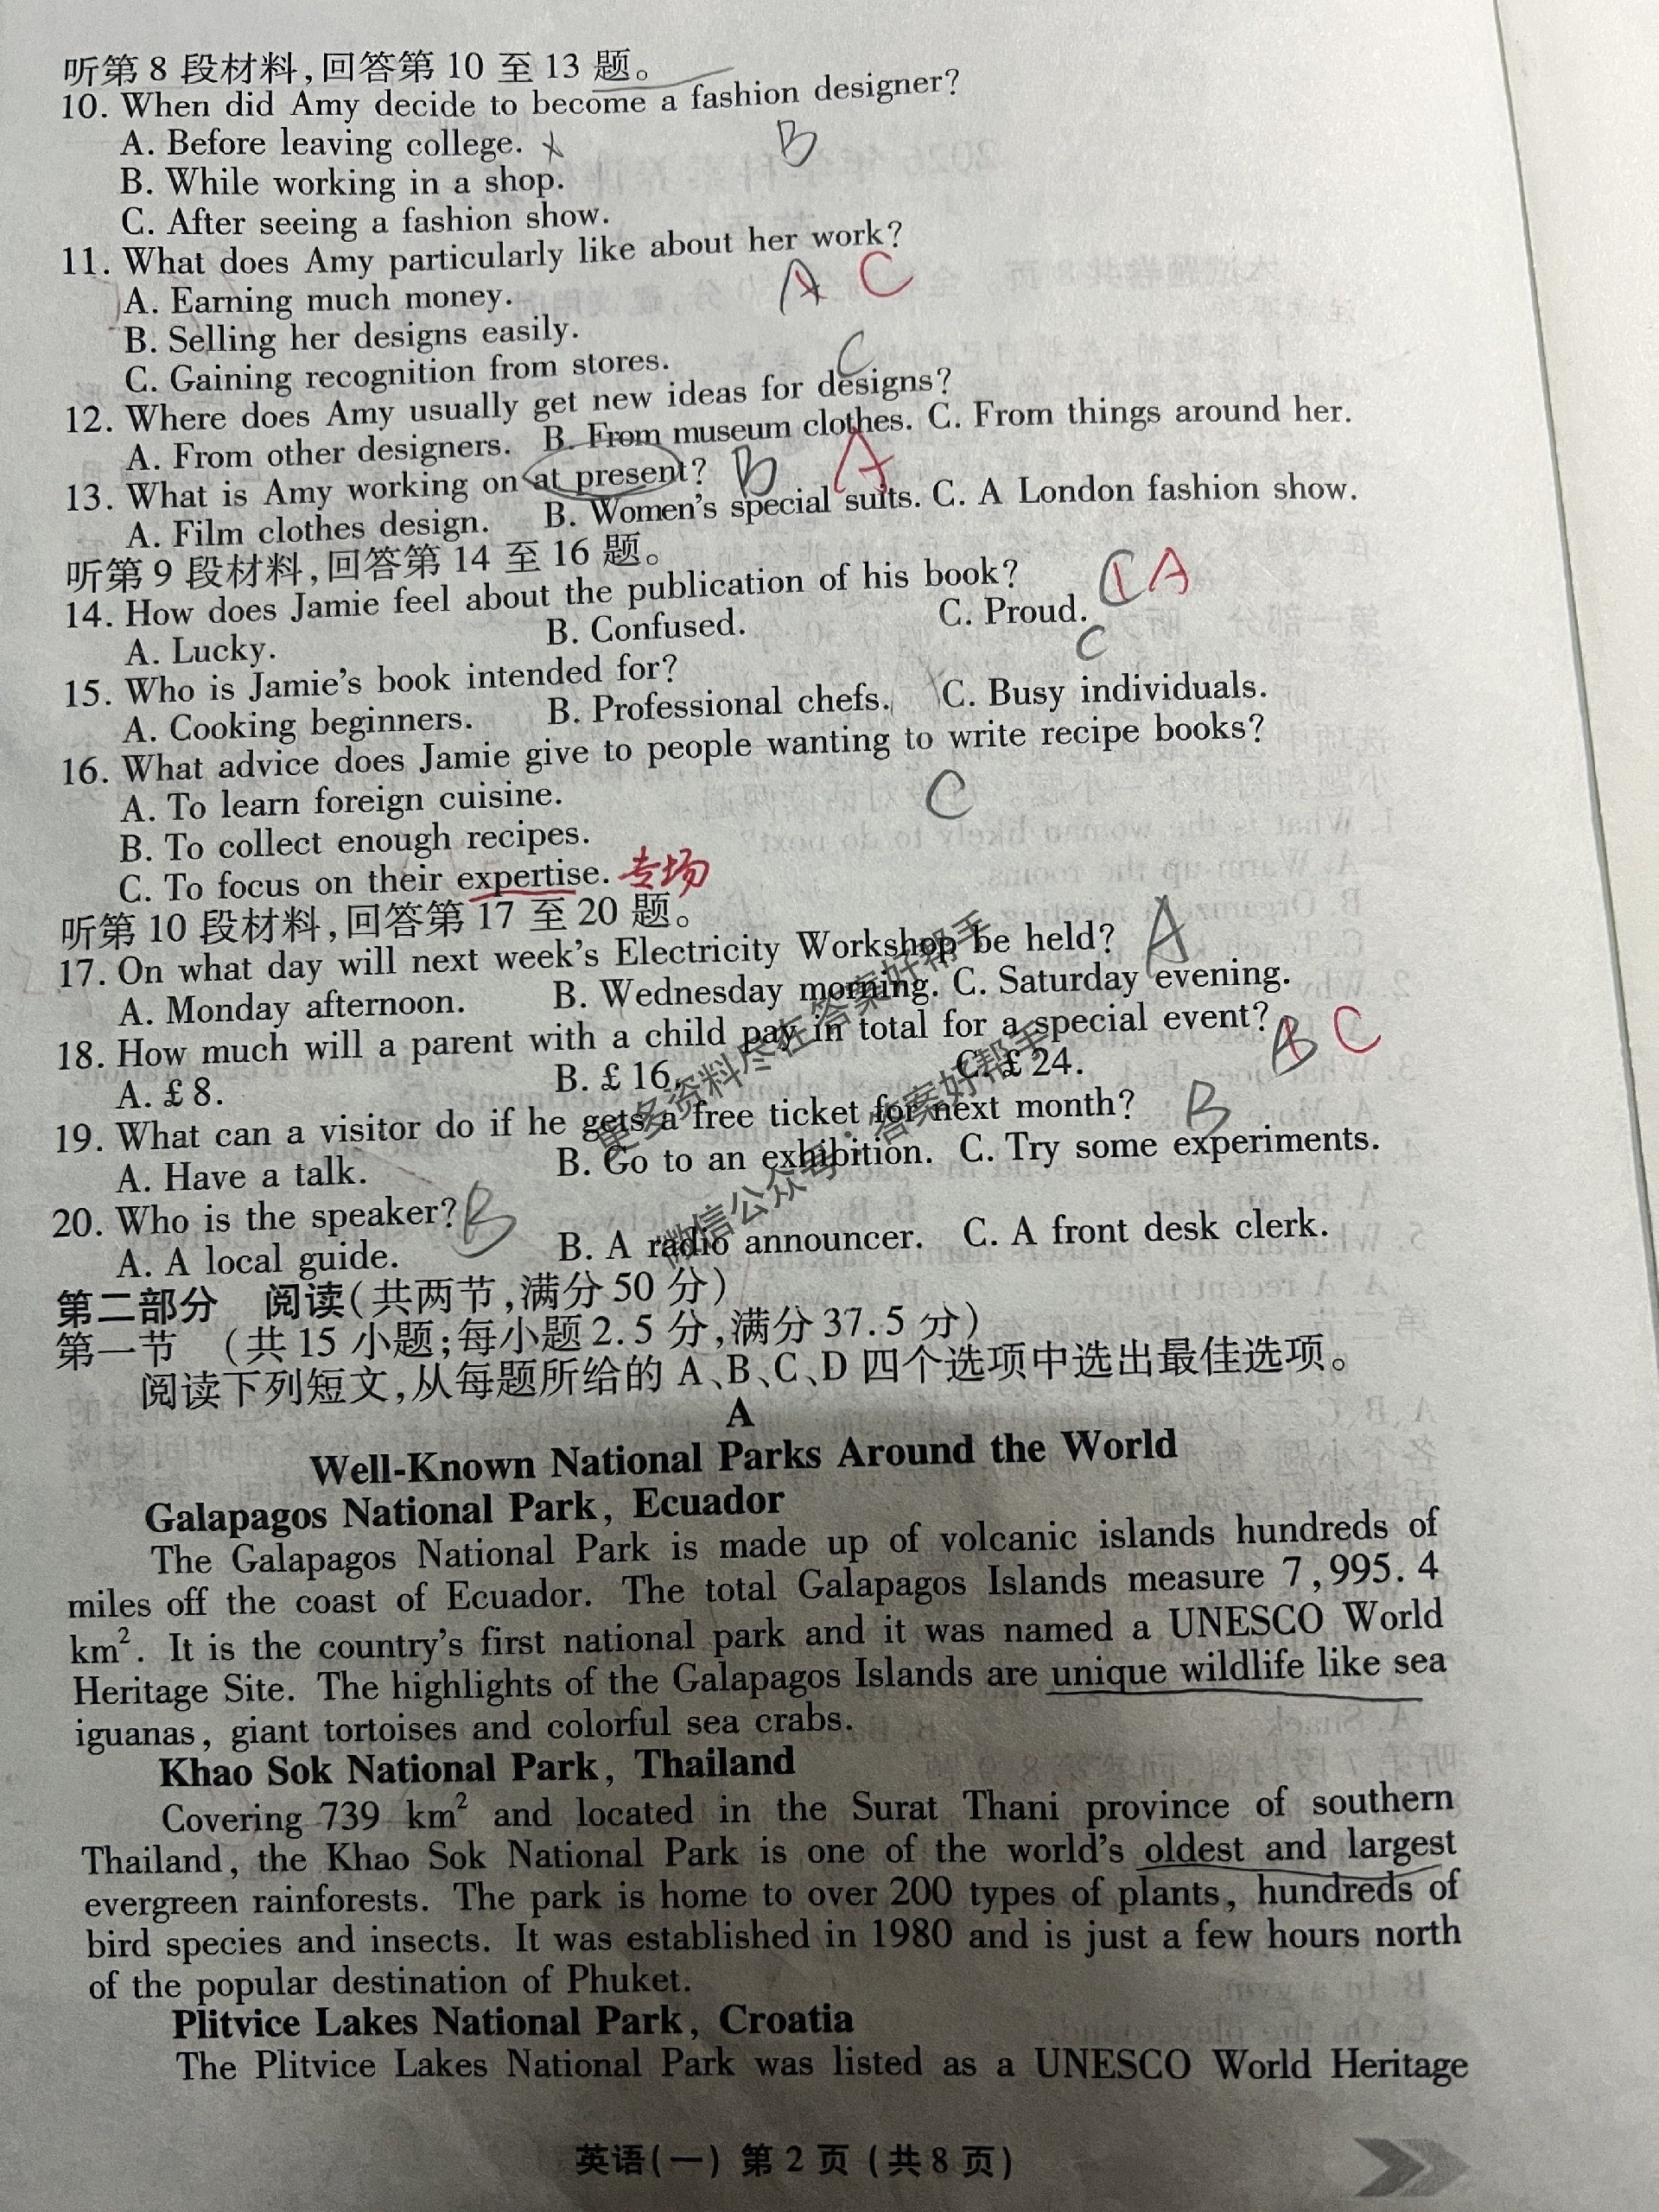 听第 8 段材料,回答第 10 至 13 题。
10. When did Amy decide to become a fashion designer?
A. Before leaving college. x
B
B. While working in a shop.
C. After seeing a fashion show.
11. What does Amy particularly like about her work?
A C
A. Earning much money.
B. Selling her designs easily.
C. Gaining recognition from stores.
C
12. Where does Amy usually get new ideas for designs?
A. From other designers. B. From museum clothes. C. From things around her.
13. What is Amy working on at present? B A
A. Film clothes design. B. Women's special suits. C. A London fashion show.
听第 9 段材料,回答第 14 至 16 题。
14. How does Jamie feel about the publication of his book? C A
A. Lucky. B. Confused. C. Proud.
C
15. Who is Jamie's book intended for?
A. Cooking beginners. B. Professional chefs. C. Busy individuals.
16. What advice does Jamie give to people wanting to write recipe books?
A. To learn foreign cuisine. C
B. To collect enough recipes.
C. To focus on their expertise. 专场
听第 10 段材料,回答第 17 至 20 题。
17. On what day will next week's Electricity Workshop be held? A
A. Monday afternoon. B. Wednesday morning. C. Saturday evening.
18. How much will a parent with a child pay in total for a special event? B C
A. £ 8. B. £ 16. C. £ 24.
19. What can a visitor do if he gets a free ticket for next month? B
A. Have a talk. B. Go to an exhibition. C. Try some experiments.
20. Who is the speaker? B
A. A local guide. B. A radio announcer. C. A front desk clerk.
更多资料尽在答案好帮手
微信公众号:答案好帮手
第二部分 阅读(共两节,满分 50 分)
第一节 (共 15 小题;每小题 2.5 分,满分 37.5 分)
阅读下列短文,从每题所给的 A、B、C、D 四个选项中选出最佳选项。
A
Well-Known National Parks Around the World
Galapagos National Park, Ecuador
The Galapagos National Park is made up of volcanic islands hundreds of
miles off the coast of Ecuador. The total Galapagos Islands measure 7,995.4
km². It is the country's first national park and it was named a UNESCO World
Heritage Site. The highlights of the Galapagos Islands are unique wildlife like sea
iguanas, giant tortoises and colorful sea crabs.
Khao Sok National Park, Thailand
Covering 739 km² and located in the Surat Thani province of southern
Thailand, the Khao Sok National Park is one of the world's oldest and largest
evergreen rainforests. The park is home to over 200 types of plants, hundreds of
bird species and insects. It was established in 1980 and is just a few hours north
of the popular destination of Phuket.
Plitvice Lakes National Park, Croatia
The Plitvice Lakes National Park was listed as a UNESCO World Heritage
英语(一) 第 2 页 (共 8 页)